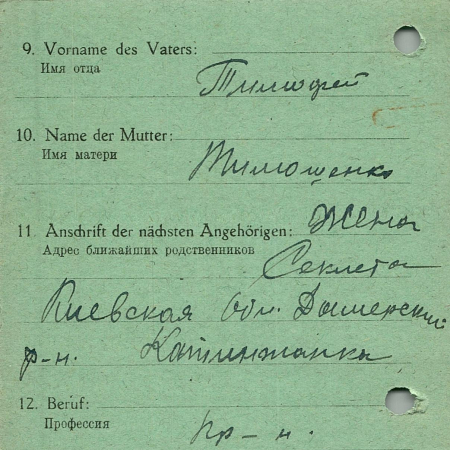 9. Vorname des Vaters:
Имя отца
Тимофей
10. Name der Mutter:
Имя матери
Тимошенко
11. Anschrift der nächsten Angehörigen: Жена
Адрес ближайших родственников
Секлета
Киевская обл. Дымерский
р-н. Катюжанка
12. Beruf:
Профессия
кр-н.